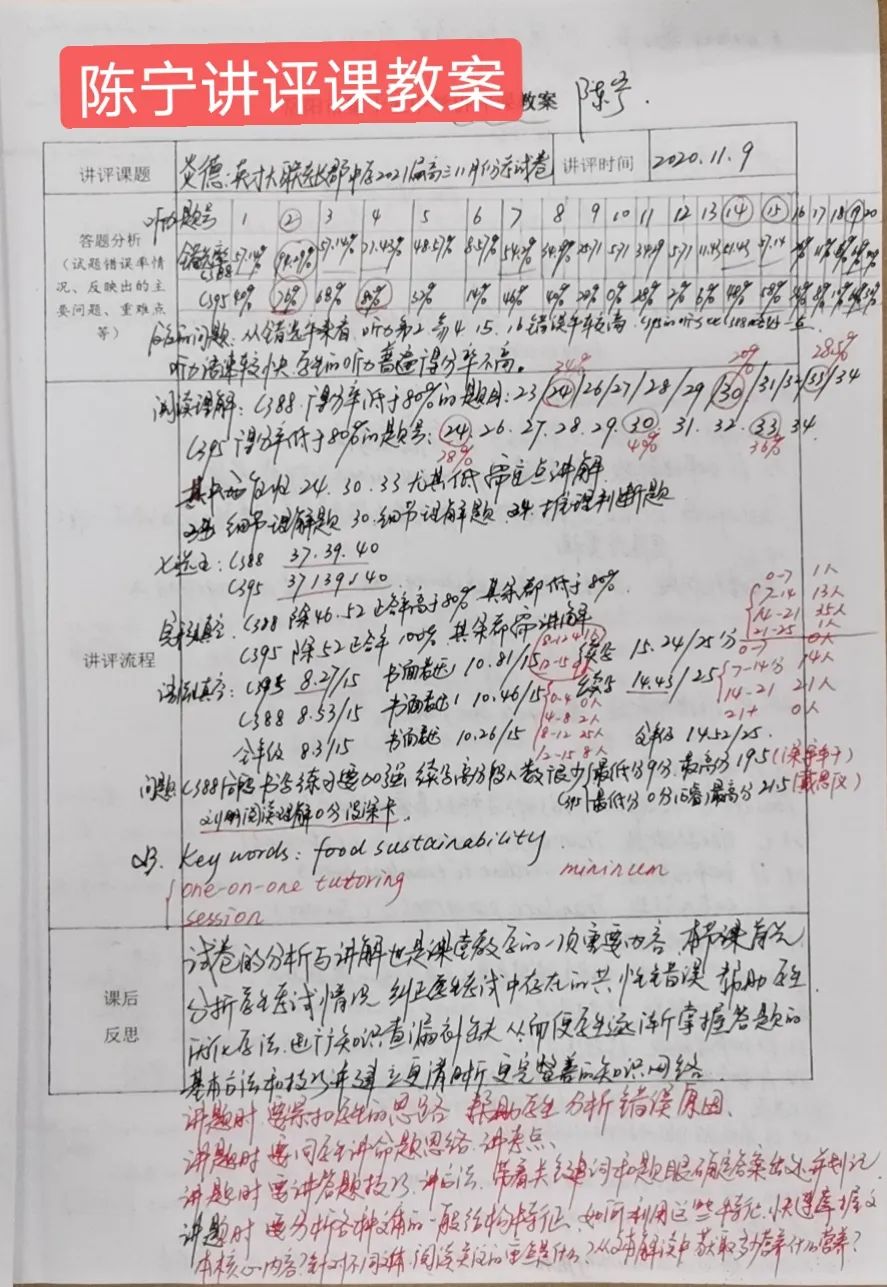 陈宁讲评课教案
教案 陈宁.
讲评课题 炎德·英才大联考长郡中学2021届高三11月份月考试卷 讲评时间 2020.11.9
听力题号 1 2 3 4 5 6 7 8 9 10 11 12 13 14 15 16 17 18 19 20
答题分析
(试题错误率情
况、反映出的主
要问题、重难点
等)
错误率
C388 57.14% 94.29% 57.14% 21.43% 48.57% 8.57% 54.2% 34.9% 25.71 5.71 34.29 5.71 11.43 51.43 57.14
C395 40% 76% 68% 80% 32% 14% 46% 40% 20% 0% 28% 2% 6% 48% 58%
存在的问题: 从错误率来看, 听力第2 第4 15. 16错误率较高.
听力语速较快, 学生的听力普遍得分率不高。
34% 20% 28.5%
阅读理解: C388. 得分率低于80%的题目: 23/24/26/27/28/29/30/31/32/33/34
C395 得分率低于80%的题号: 24. 26. 27. 28. 29. 30. 31. 32. 33. 34
28% 49% 36%
其中 24. 30. 33 尤其低 需重点讲解
细节理解题 30. 细节理解题 推理判断题
七选五: C388 37. 39. 40
C395 37/39/40
完形填空: C388 除46. 52 正答率高于80% 其余都低于80%.
C395 除52正答率100% 其余都需讲解
0-7 1人
7-14 13人
14-21 35人
21-25 1人
讲评流程
语法填空: C395 8.27/15 书面表达: 10.81/15 续写 15.24/25分
C388 8.53/15 书面表达: 10.46/15 续写 14.43/25
全年级 8.3/15 书面表达 10.26/15 全年级 14.52/25.
0-7 0人
7-14分 14人
14-21 21人
21+ 0人
0-4 0人
4-8 2人
8-12 25人
12-15 8人
问题: C388 书写练习要加强, 续写高分段人数很少 最低分9分, 最高分19.5
C395 最低分0分 最高分21.5
阅读理解0分没涂卡.
Q3. Key words: food sustainability
one-on-one tutoring mininum
session
课后
反思
试卷的分析与讲解也是课堂教学的一项重要内容 本节课首先
分析学生考试情况, 纠正学生考试中存在的共性错误 帮助学生
优化学法, 进行知识查漏补缺 从而使学生逐渐掌握答题的
基本方法和技巧并建立更清晰更完整的知识网络.
讲题时 要 学生的思路 帮助学生 分析错误原因、
讲题时 要向学生讲命题思路 讲考点、
讲题时要讲答题技巧, 讲方法, 带着关键词和题眼确定答案出处并划记
讲题时 要分析各种文体的一般结构特征、如何利用这些特征, 快速掌握文
本核心内容? 针对不同文体, 阅读关注的重点是什么? 从文本解读中获取多少营养什么营养?